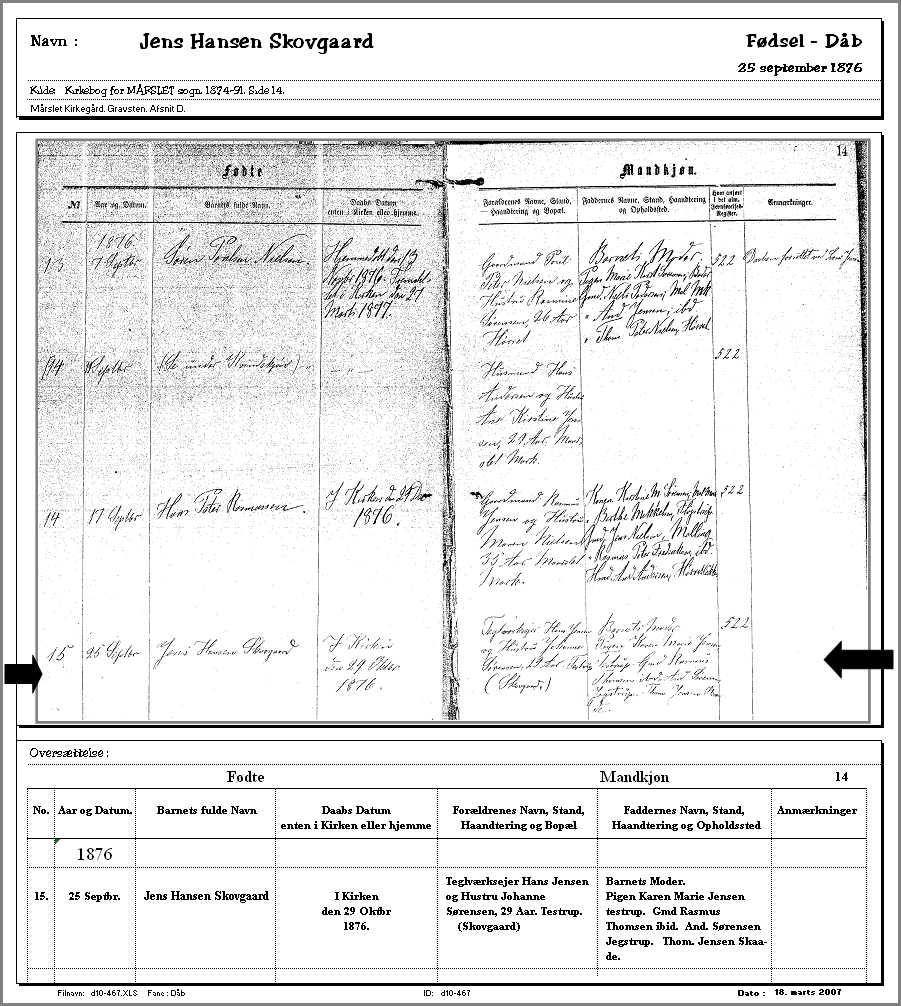 Navn : Jens Hansen Skovgaard Fødsel - Dåb
25 september 1876
Kilde Kirkebog for MÅRSLET sogn. 1874-91. Side 14.
Mårslet Kirkegård. Gravsten. Afsnit D.
14
Fødte Mandkjøn.
№ Aar og Datum. Barnets fulde Navn. Daabs Datum enten i Kirken eller hjemme. Forældrenes Navne, Stand, Haandtering og Bopæl. Faddernes Navne, Stand, Haandtering og Opholdssted. Anmærkninger.
1876
13 7 Septbr Søren Poulsen Nielsen.
Hjemmedøbt den 13
Septbr 1876
Kirken den 21
Marts 1877.
Gaardmand Poul
Peter Nielsen og
Hustru Rasmine
Sørensen, 26 Aar
Hørret
Barnets Moder.
522
Septbr (Se under Kvindekjøn) „ — „ —
Husmand Hans
Andersen og Hustru
Ane Kirstine Jen-
sen, 29 Aar. Maars-
let Mark.
522
14 17 Septbr Hans Peter Rasmussen.
I Kirken den
1876.
Gaardmand Rasmus
Jensen og Hustru
Maren Nielsen
35 Aar Maarslet
Mark.
522
15 25 Septbr Jens Hansen Skovgaard
I Kirken
den 29 Oktbr
1876.
Teglværksejer Hans Jensen
og Hustru Johanne
Sørensen, 29 Aar. Testrup
(Skovgaard)
Barnets Moder
Pigen Karen Marie Jensen
Testrup Gmd Rasmus
Thomsen ibid. And Sørensen
Jegstrup. Thom Jensen Skaa-
de.
522
Oversættelse :
Fodte Mandkjøn 14
No. Aar og Datum. Barnets fulde Navn Daabs Datum Forældrenes Navn, Stand, Faddernes Navn, Stand, Anmærkninger
enten i Kirken eller hjemme Haandtering og Bopæl Haandtering og Opholdssted
1876
15. 25 Septbr. Jens Hansen Skovgaard
I Kirken
den 29 Oktbr
1876.
Teglværksejer Hans Jensen
og Hustru Johanne
Sørensen, 29 Aar. Testrup.
(Skovgaard)
Barnets Moder.
Pigen Karen Marie Jensen
testrup. Gmd Rasmus
Thomsen ibid. And. Sørensen
Jegstrup. Thom. Jensen Skaa-
de.
Filnavn: d10-467.XLS Fane : Dåb ID: d10-467 Dato : 18. marts 2007